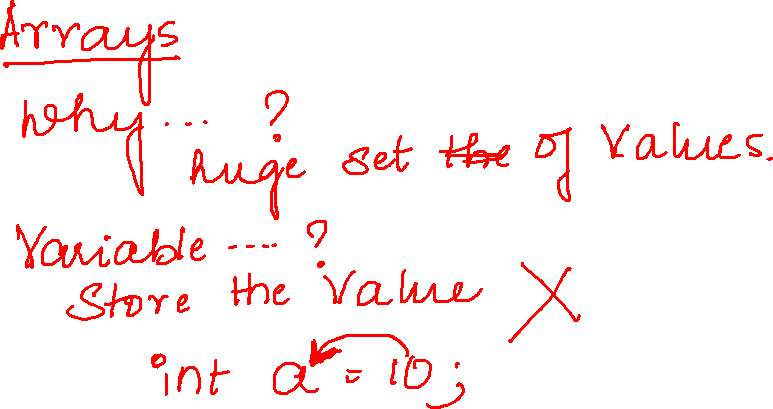 Arrays
Why... ?
huge set the of values.
Variable .... ?
Store the value X
int a = 10;